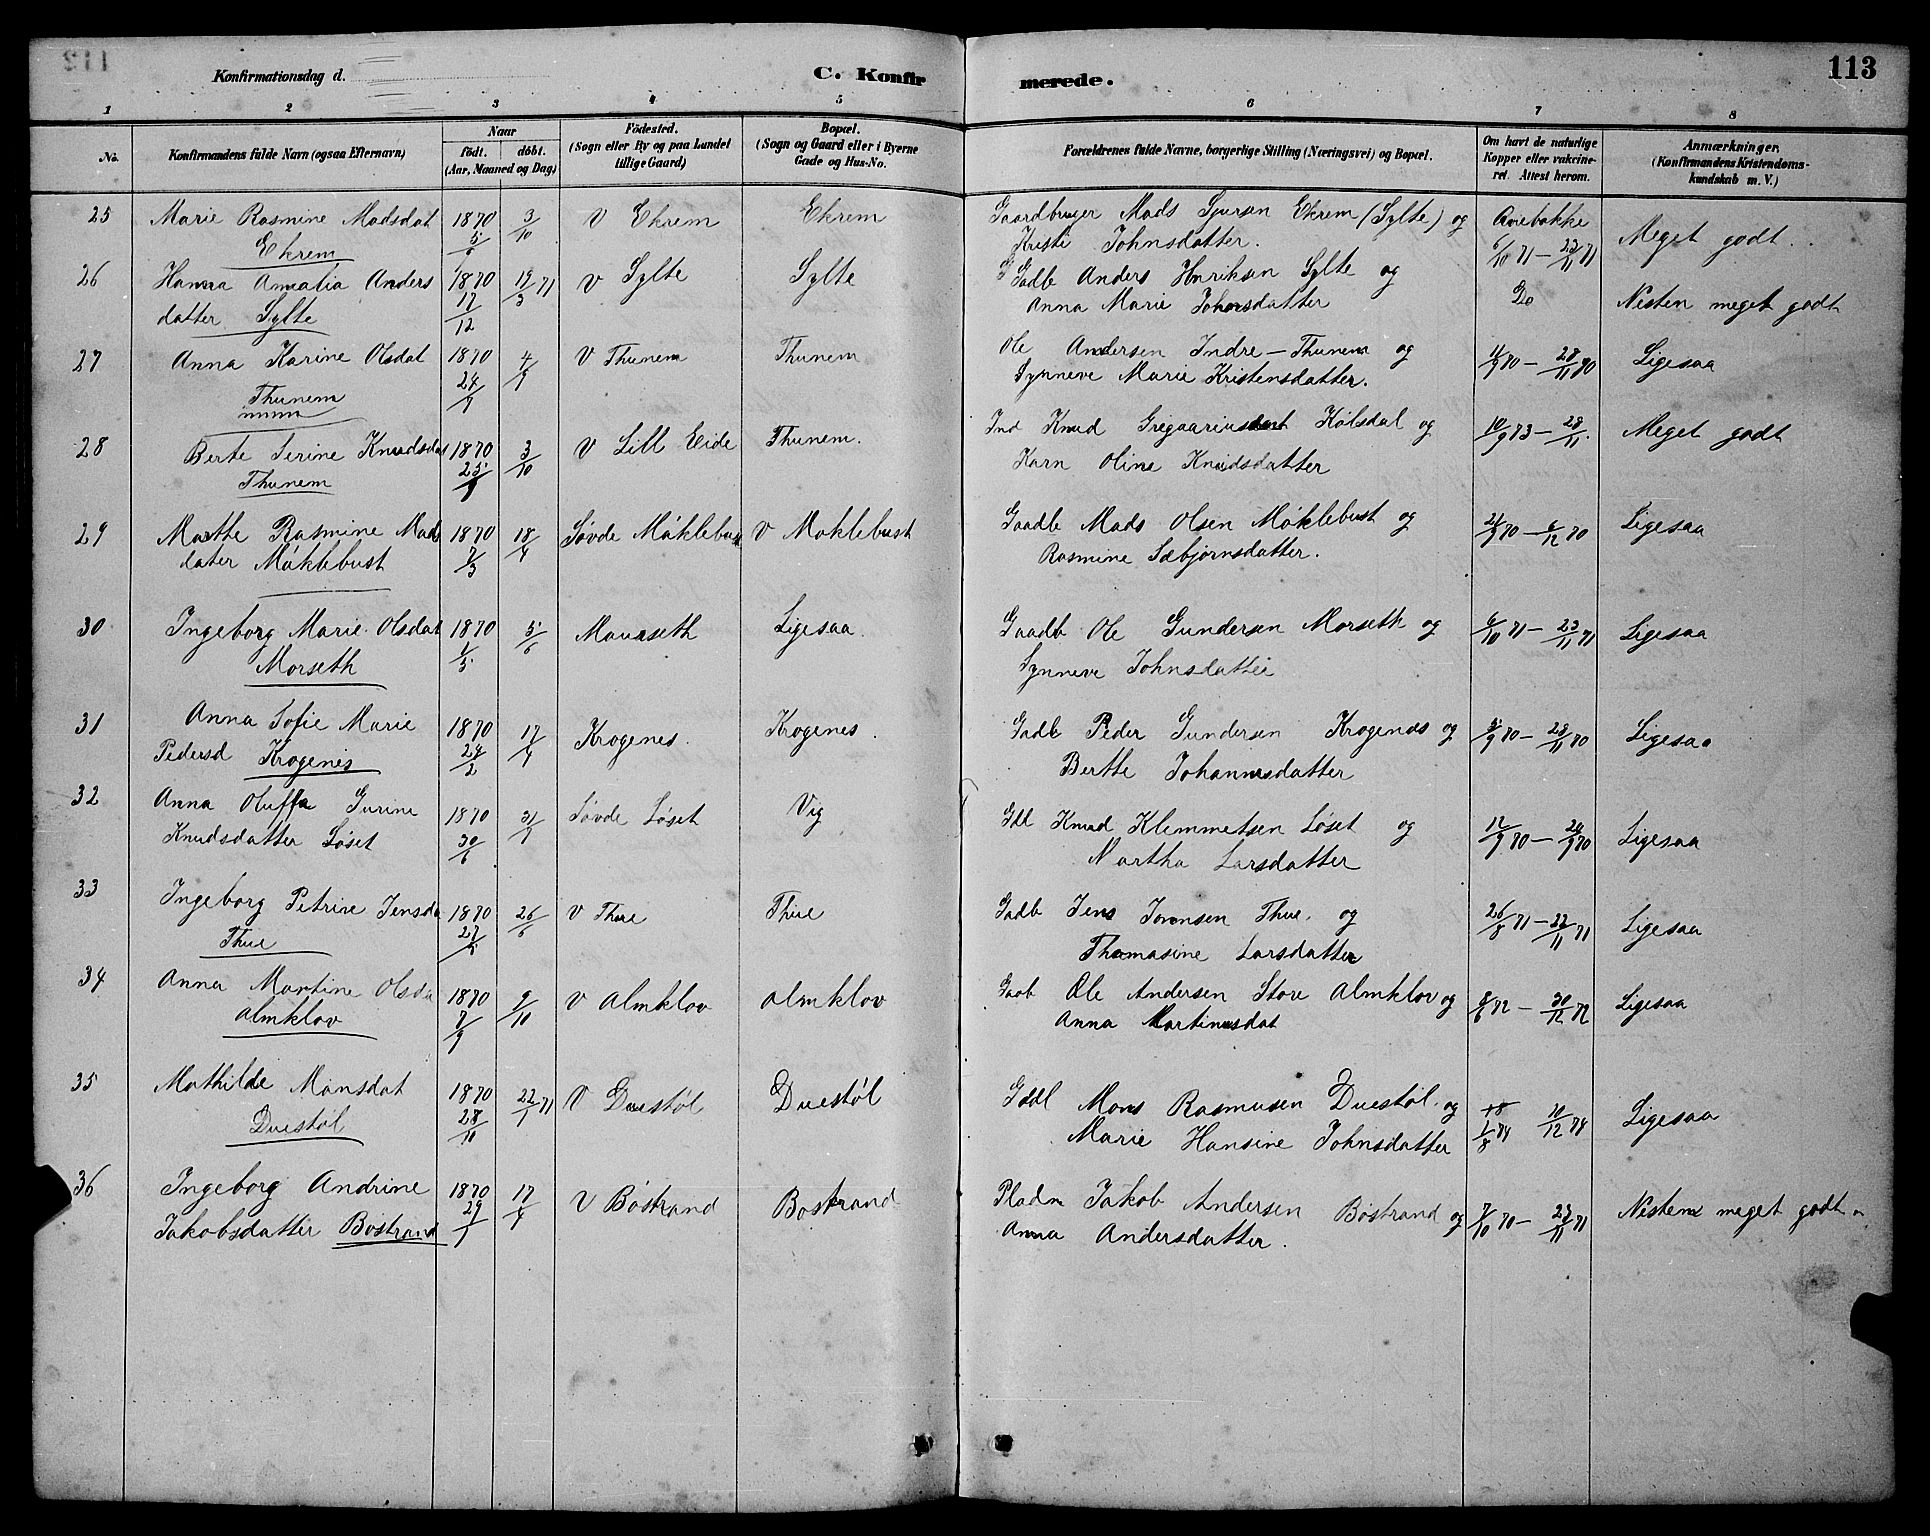 112
113
Konfirmationsdag d.
C. Konfirmerede.
1 2 3 4 5 6 7 8
No.
Konfirmandens fulde Navn (ogsaa Efternavn)
Naar
födt. döbt.
(Aar, Maaned og Dag)
Födested.
(Sogn eller By og paa Landet
tillige Gaard)
Bopæl.
(Sogn og Gaard eller i Byerne
Gade og Hus-No.
Forældrenes fulde Navne, borgerlige Stilling (Næringsvei) og Bopæl.
Om havt de naturlige
Kopper eller vakcine-
ret. Attest herom.
Anmærkninger.
(Konfirmandens Kristendoms-
kundskab m. V.)
25 Marie Rasmine Madsdat 1870 3/10 V Ekrem Ekrem Gaardbruger Mads Sjursen Ekrem (Sylte) og Aarebakke
Ekrem Kristi Johnsdatter. 6/10 71 — 23/11 71 Meget godt.
26 Hanna Amalia Anders 1870 19/3 71 V Sylte Sylte Gadb Anders Henriksen Sylte og
datter Sylte 17/12 Anna Marie Johansdatter Do Nesten meget godt
27 Anna Karine Olsdat 1870 4/9 V Thunem Thunem Ole Andersen Indre — Thunem og
Thunem 24/7 Synneve Marie Kristensdatter. 11/9 70 — 28/11 70 Ligesaa
28 Berte Serine Knudsdat 1870 3/10 V Lill Eide Thunem. Ind Knud Gregoriusen Kølsdal og 10/9 73 — 28/11. Meget godt
Thunem Karn Oline Knudsdatter
29 Marthe Rasmine Mads 1870 18/4 Søvde Møklebust V Moklebust Gaadb Mads Olsen Møklebust og 21/9 70 — 6/12 70 Ligesaa
dater Møklebust 7/3 Rasmine Sæbjørnsdatter.
30 Ingeborg Marie Olsdat 1870 5/6 Maurseth Ligesaa. Gaadb Ole Gundersen Morseth og 6/10 71 — 23/11 71 Ligesaa
Morseth 1/5 Synneve Johnsdatter
31 Anna Sofie Marie 1870 17/4 Krogenes. Krogenes. Gadb Peder Gundersen Krogenæs og 5/9 70 — 28/11 70 Ligesaa
Pedersd Krogenes 24/2 Berthe Johannesdatter
32 Anna Oluffa Gurine 1870 31/7 Søvde Løset Vig Gdb Knud Klemmetsen Løset og 12/9 70 — 24/9 70 Ligesaa
Knudsdatter Løset 30/6 Martha Larsdatter
33 Ingeborg Petrine Jensda 1870 26/6 V Thue Thue Gadb Jens Jonsen Thue. og 26/8 71 — 22/11 71 Ligesaa
Thue Thomasine Larsdatter
34 Anna Martine Olsda 1870 9/10 V Almklov Almklov Gaob Ole Andersen Store Almklov og 8/6 72 — 30/12 72 Ligesaa
Almklov 7/9 Anna Martinusdat
35 Mathilde Monsdat 1870 22/1 71 V Duestøl Duestøl Gddl Mons Rasmusen Duestøl og 1/8 74 10/12 74 Ligesaa
Duestøl 28/11 Marie Hansine Johnsdatter
36 Ingeborg Andrine 1870 17/4 V Bøstrand Bostrand Pladm Jakob Andersen Bøstrand og 7/10 70 — 23/11 71 Nesten meget godt
Jakobsdatter Bostrand 29/1 Anna Andersdatter.